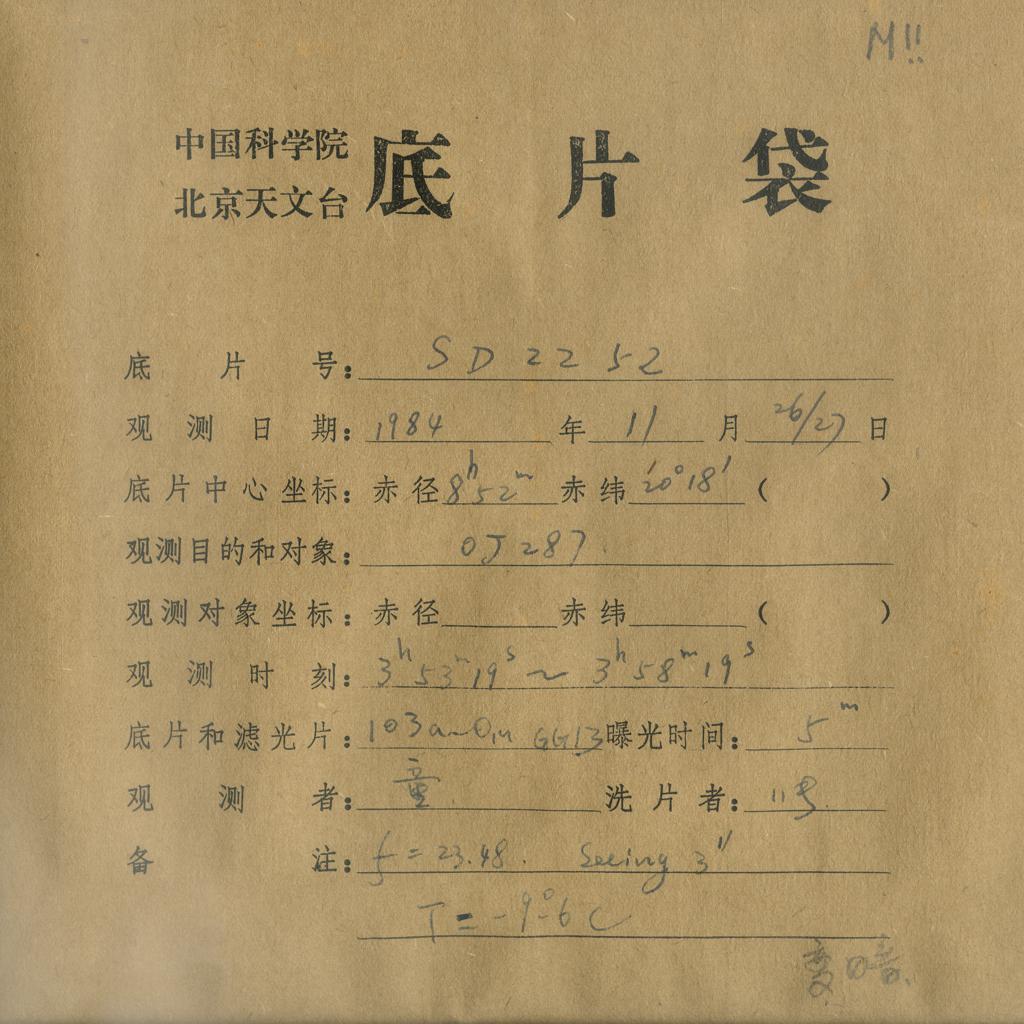 M!!
中国科学院
北京天文台
底片袋
底片号: SD2252
观测日期: 1984年11月26/27日
底片中心坐标: 赤径8h52m赤纬20°18′( )
观测目的和对象: OJ287.
观测对象坐标: 赤径 赤纬 ( )
观测时刻: 3h53m19s~3h58m19s
底片和滤光片: 103a-O, GG13曝光时间: 5m
观测者: 童. 洗片者:
备注: f=23.48. Seeing 3″
T=-9°6C
变暗.